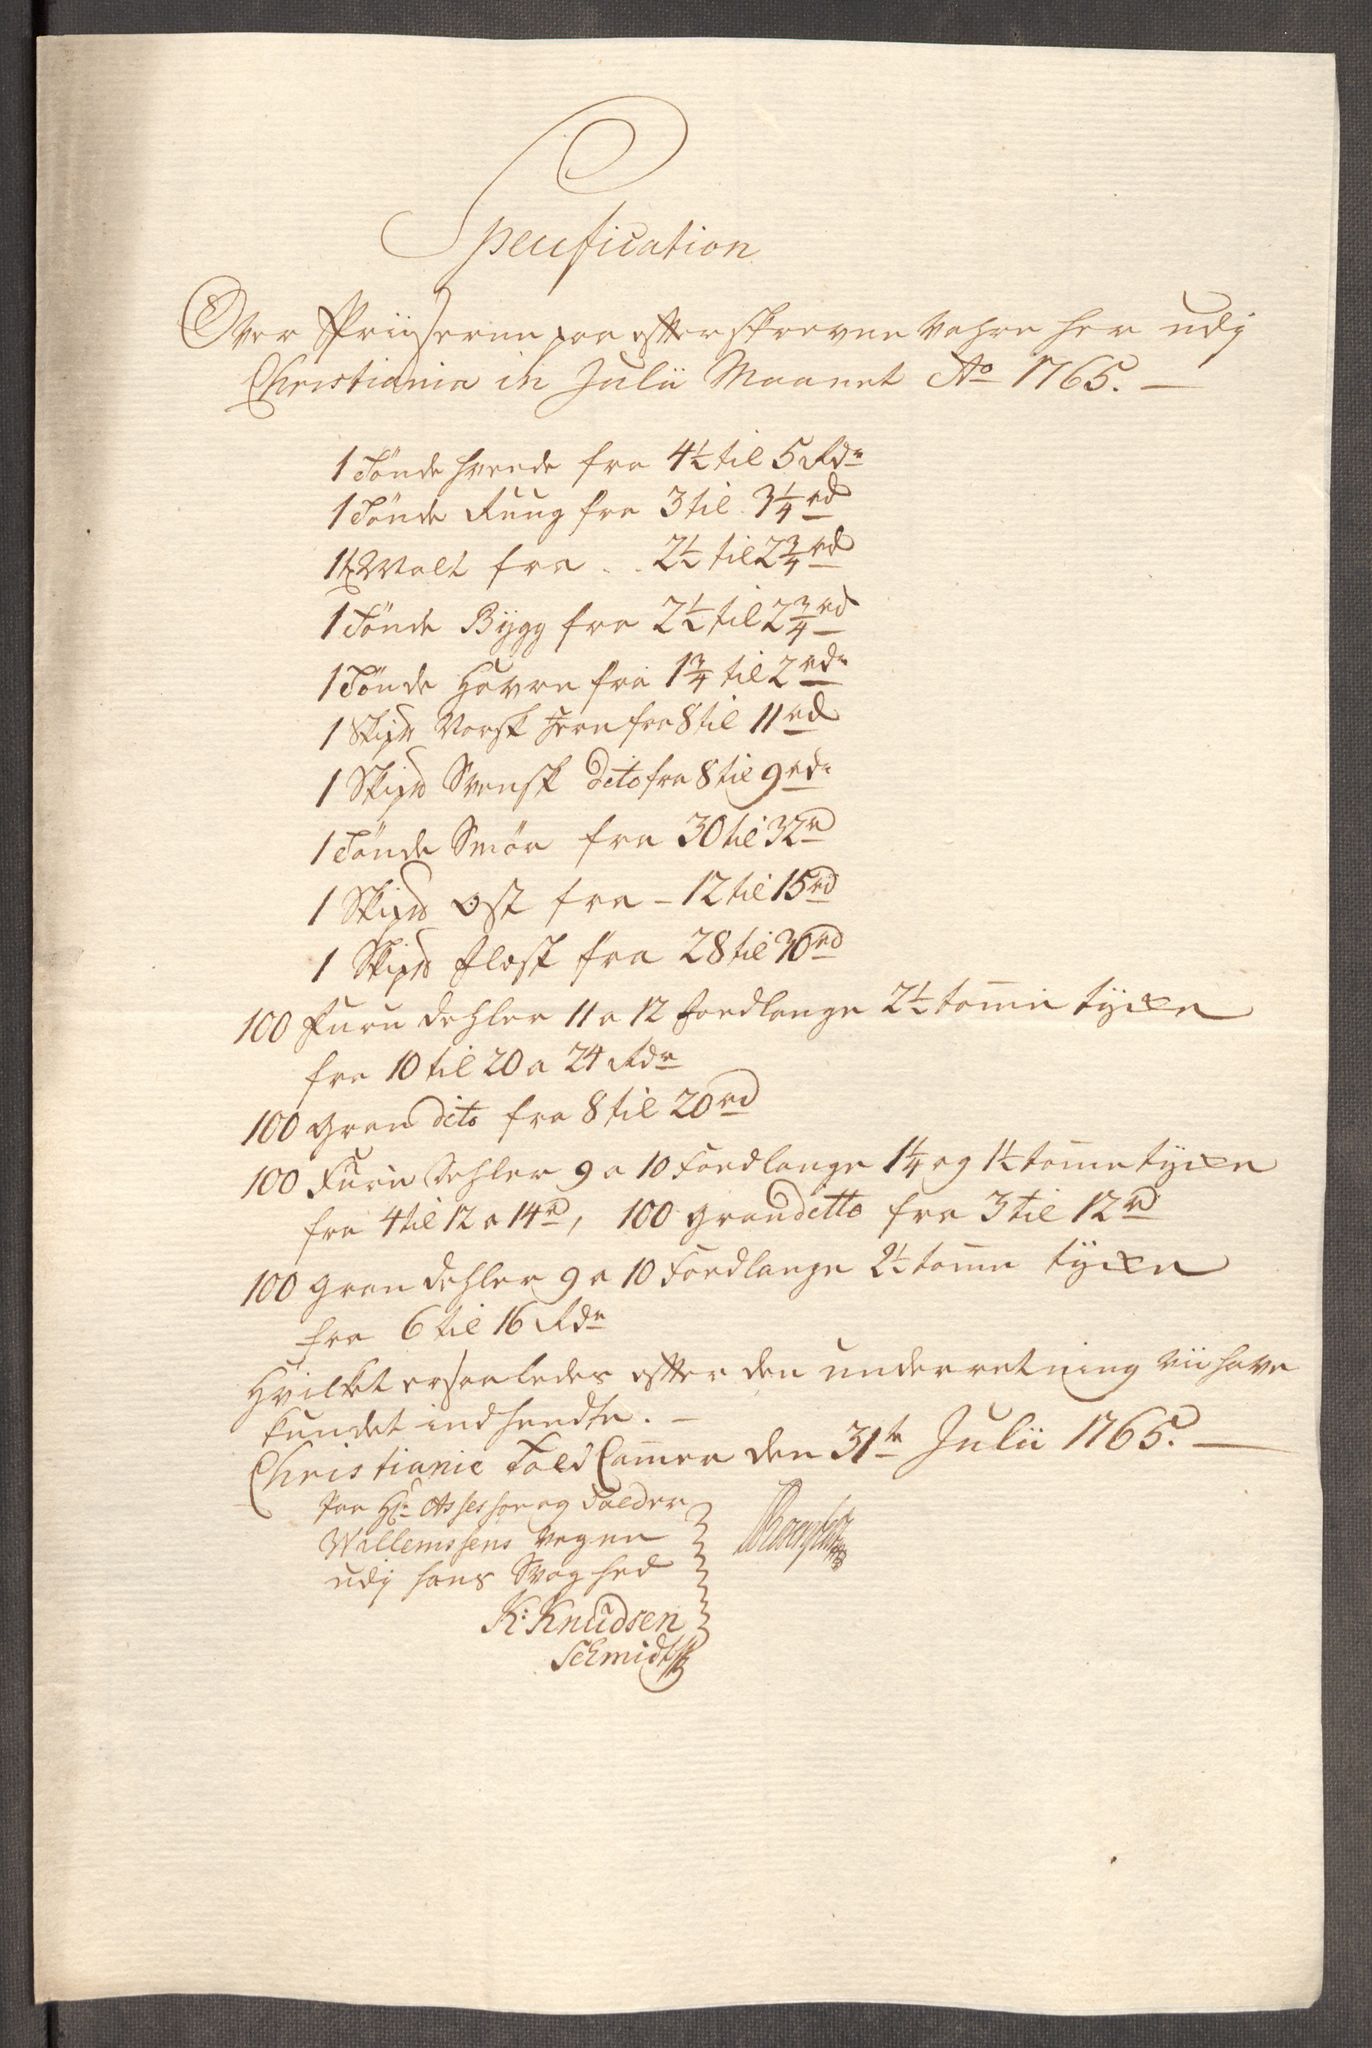 Specification
Over Priiserne paa efterskrevne Vahre her udj
Christiania in Julii Maanet Ao 1765. —
1 Tönde Hvede fra 4½ til 5 Rdr
1 Tönde Rug fra 3 til 3¼ rd
1 td Malt fra .. 2½ til 2¾ rd
1 Tönde Bygg fra 2½ til 2¾ rd
1 Tönde Havre fra 1¾ til 2 rdr
1 Skipd Norsk Jern fra 8 til 11 rd
1 Skipd Svensk dito fra 8 til 9 rdr
1 Tönde Smör fra 30 til 32 rd
1 Skipd Ost fra – 12 til 15 rd
1 Skipd Flesk fra 28 til 30 rd
100 Furu dehler 11 a 12 Foedlange 2½ tomme tycke
fra 10 til 20 a 24 Rdr
100 gran dito fra 8 til 20 rd
100 Furu dehler 9 a 10 Foedlange 1¼ og 1½ tomme tycke
fra 4 til 12 a 14 rd, 100 gran ditto fra 3 til 12 rd
100 gran dehler 9 a 10 Foedlange 2½ tomme tycke
fra 6 til 16 Rdr
Hvilket ersaaledes efter den underretning vii have
kundet indhendte. —
Christianie Told Cammer den 31te Julii 1765. —
Paa Hr: Assessor og Tolder
Willemssens Vegne
udj hans Svaghed
K: Knudsen
Schmidt